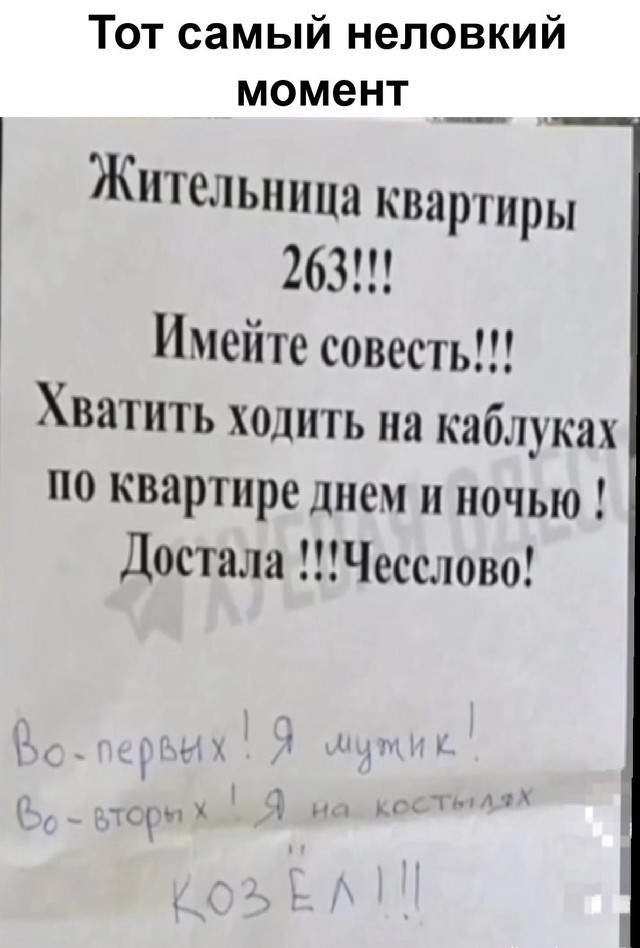 Тот самый неловкий
момент
Жительница квартиры
263!!!
Имейте совесть!!!
Хватить ходить на каблуках
по квартире днем и ночью !
Достала !!!Чесслово!
Во-первых! Я мужик!
Во-вторых! Я на костылях
КОЗЁЛ!!!